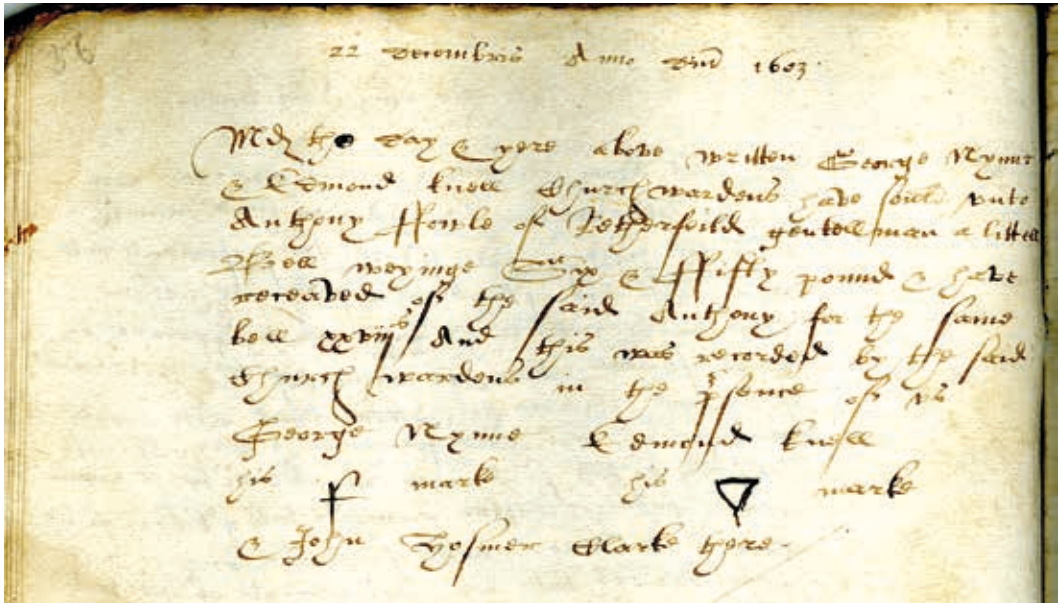 22 Decembris Anno Dni 1603
Md the day & yere above written George Nynne
& Edmond knell Churchwardens have sould unto
Anthony ffowle of Retherfeild gentellman a littell
Bell weyinge Syx & ffifty pound & have
receaved of the said Anthony for the same
bell xxviijs And this was recorded by the said
Church wardens in the psence of vs
George Nynne Edmond knell
his marke his marke
& John clarke there